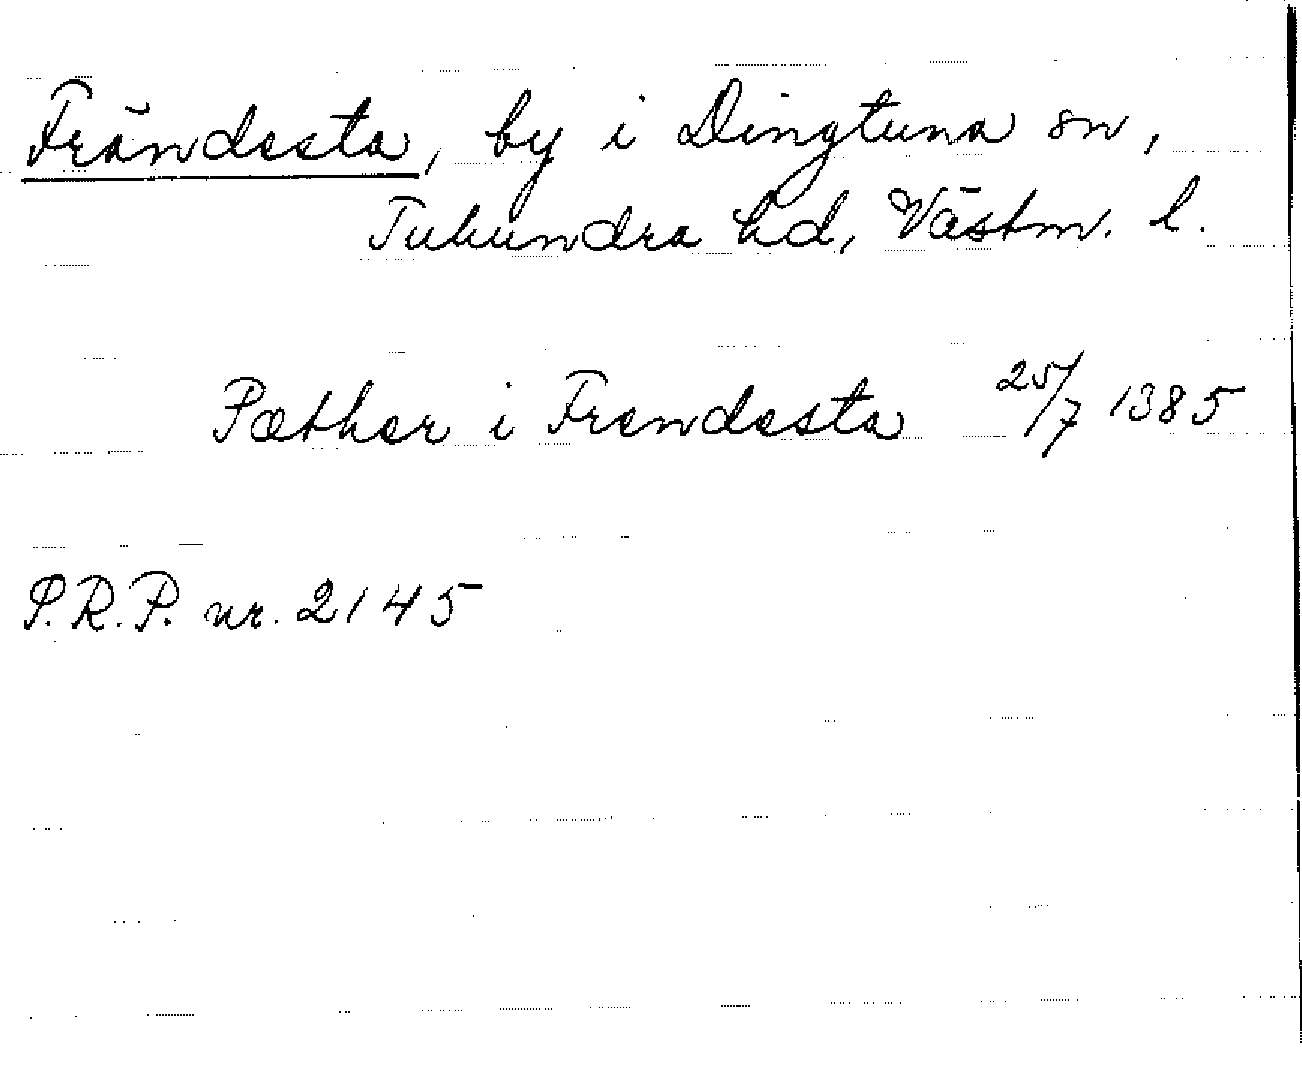 Frändesta, by i Dingtuna sn,
Tuhundra hd, Västm. l.
Pæther i Frendesta 25/7 1385
S.R.P. nr. 2145